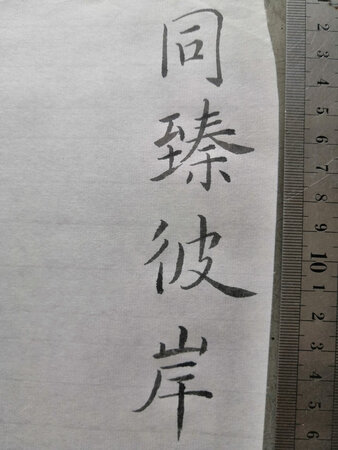 同臻彼岸
1
2
3
4
5
6
7
8
9
10
1
2
3
4
5
6